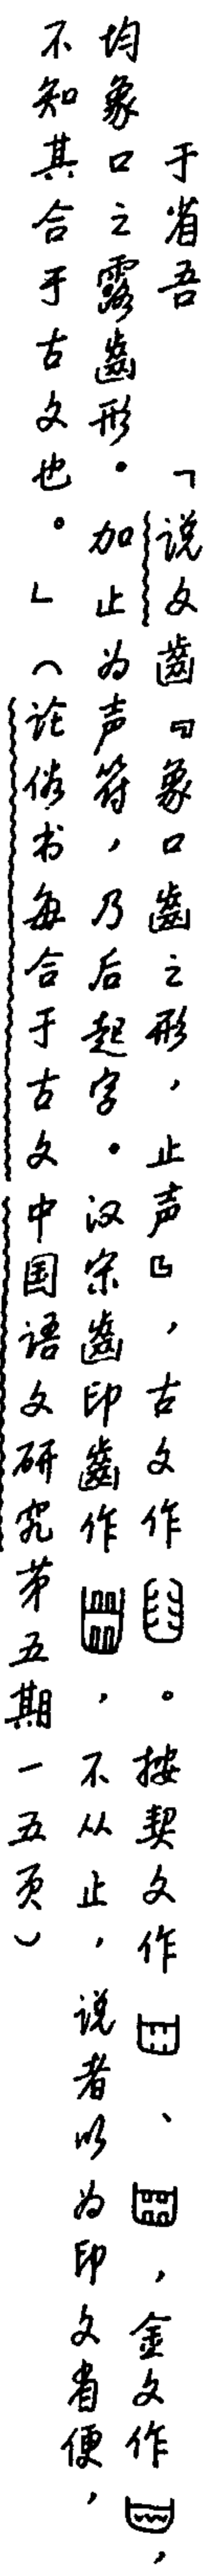 于省吾 「说文齒『象口齒之形，止声』，古文作。按契文作、，金文作，
均象口之露齒形。加止为声符，乃后起字。汉宗齒印齒作，不从止，说者以为印文省便，
不知其合于古文也。」（论俗书每合于古文中国语文研究第五期一五页）